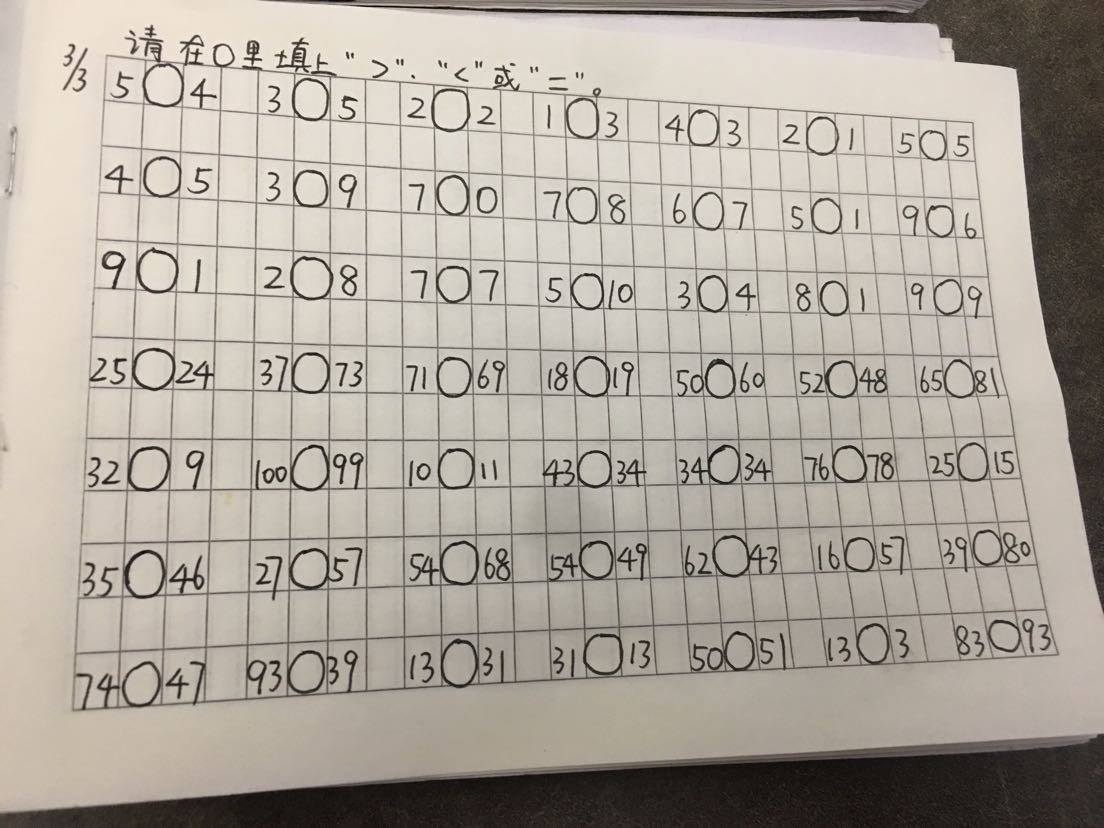 请在○里填上">"、"<"或"="。
3/3
5○4 3○5 2○2 1○3 4○3 2○1 5○5
4○5 3○9 7○0 7○8 6○7 5○1 9○6
9○1 2○8 7○7 5○10 3○4 8○1 9○9
25○24 37○73 71○69 18○19 50○60 52○48 65○81
32○9 100○99 10○11 43○34 34○34 76○78 25○15
35○46 27○57 54○68 54○49 62○43 16○57 39○80
74○47 93○39 13○31 31○13 50○51 13○3 83○93